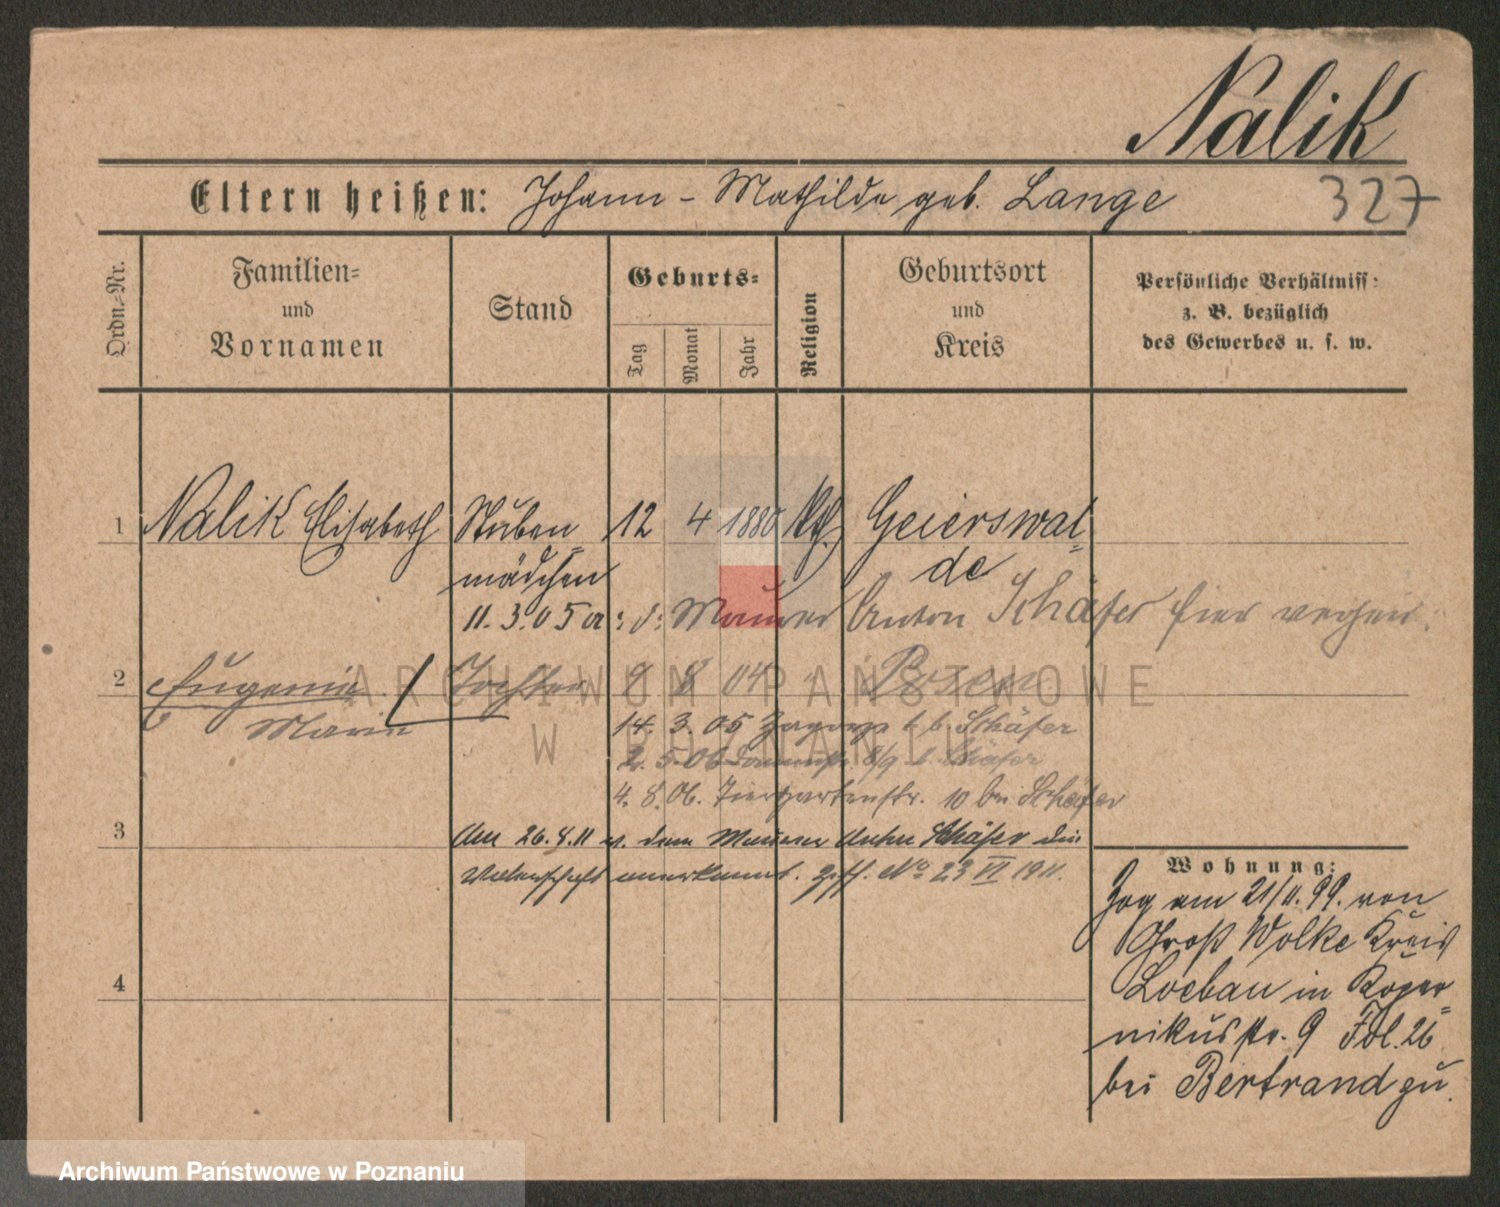 Nalik
Eltern heißen: Johann - Mathilde geb. Lange
327
Ordn.-Nr.
Familien-
und
Vornamen
Stand
Geburts-
Tag
Monat
Jahr
Religion
Geburtsort
und
Kreis
Persönliche Verhältniss:
z. B. bezüglich
des Gewerbes u. s. w.
1 Nalik Elisabeth Stuben= 12 4 1880 kth. Geierswal=
mädchen de
11. 3. 05 Maurer Anton Schäfer hier
2 Eugenie Tochter 9 8 04 Posen
Marie
14. 3. 05 b. Schäfer
2. 5. 06 8/9 b. Schäfer
4. 8. 06. Tiergartenstr. 10 bei Schäfer
3 Am 26.8.11 v. dem Maurer Anton Schäfer die
Vaterschaft anerkannt. No 23 VI 1911.
4
Wohnung:
Zog am 21/11. 99. von
Groß Wolke Kreis
Loebau in Koper=
nikusstr. 9 Fol. 26
bei Bertrand zu.
ARCHIWUM PAŃSTWOWE
W POZNANIU
Archiwum Państwowe w Poznaniu